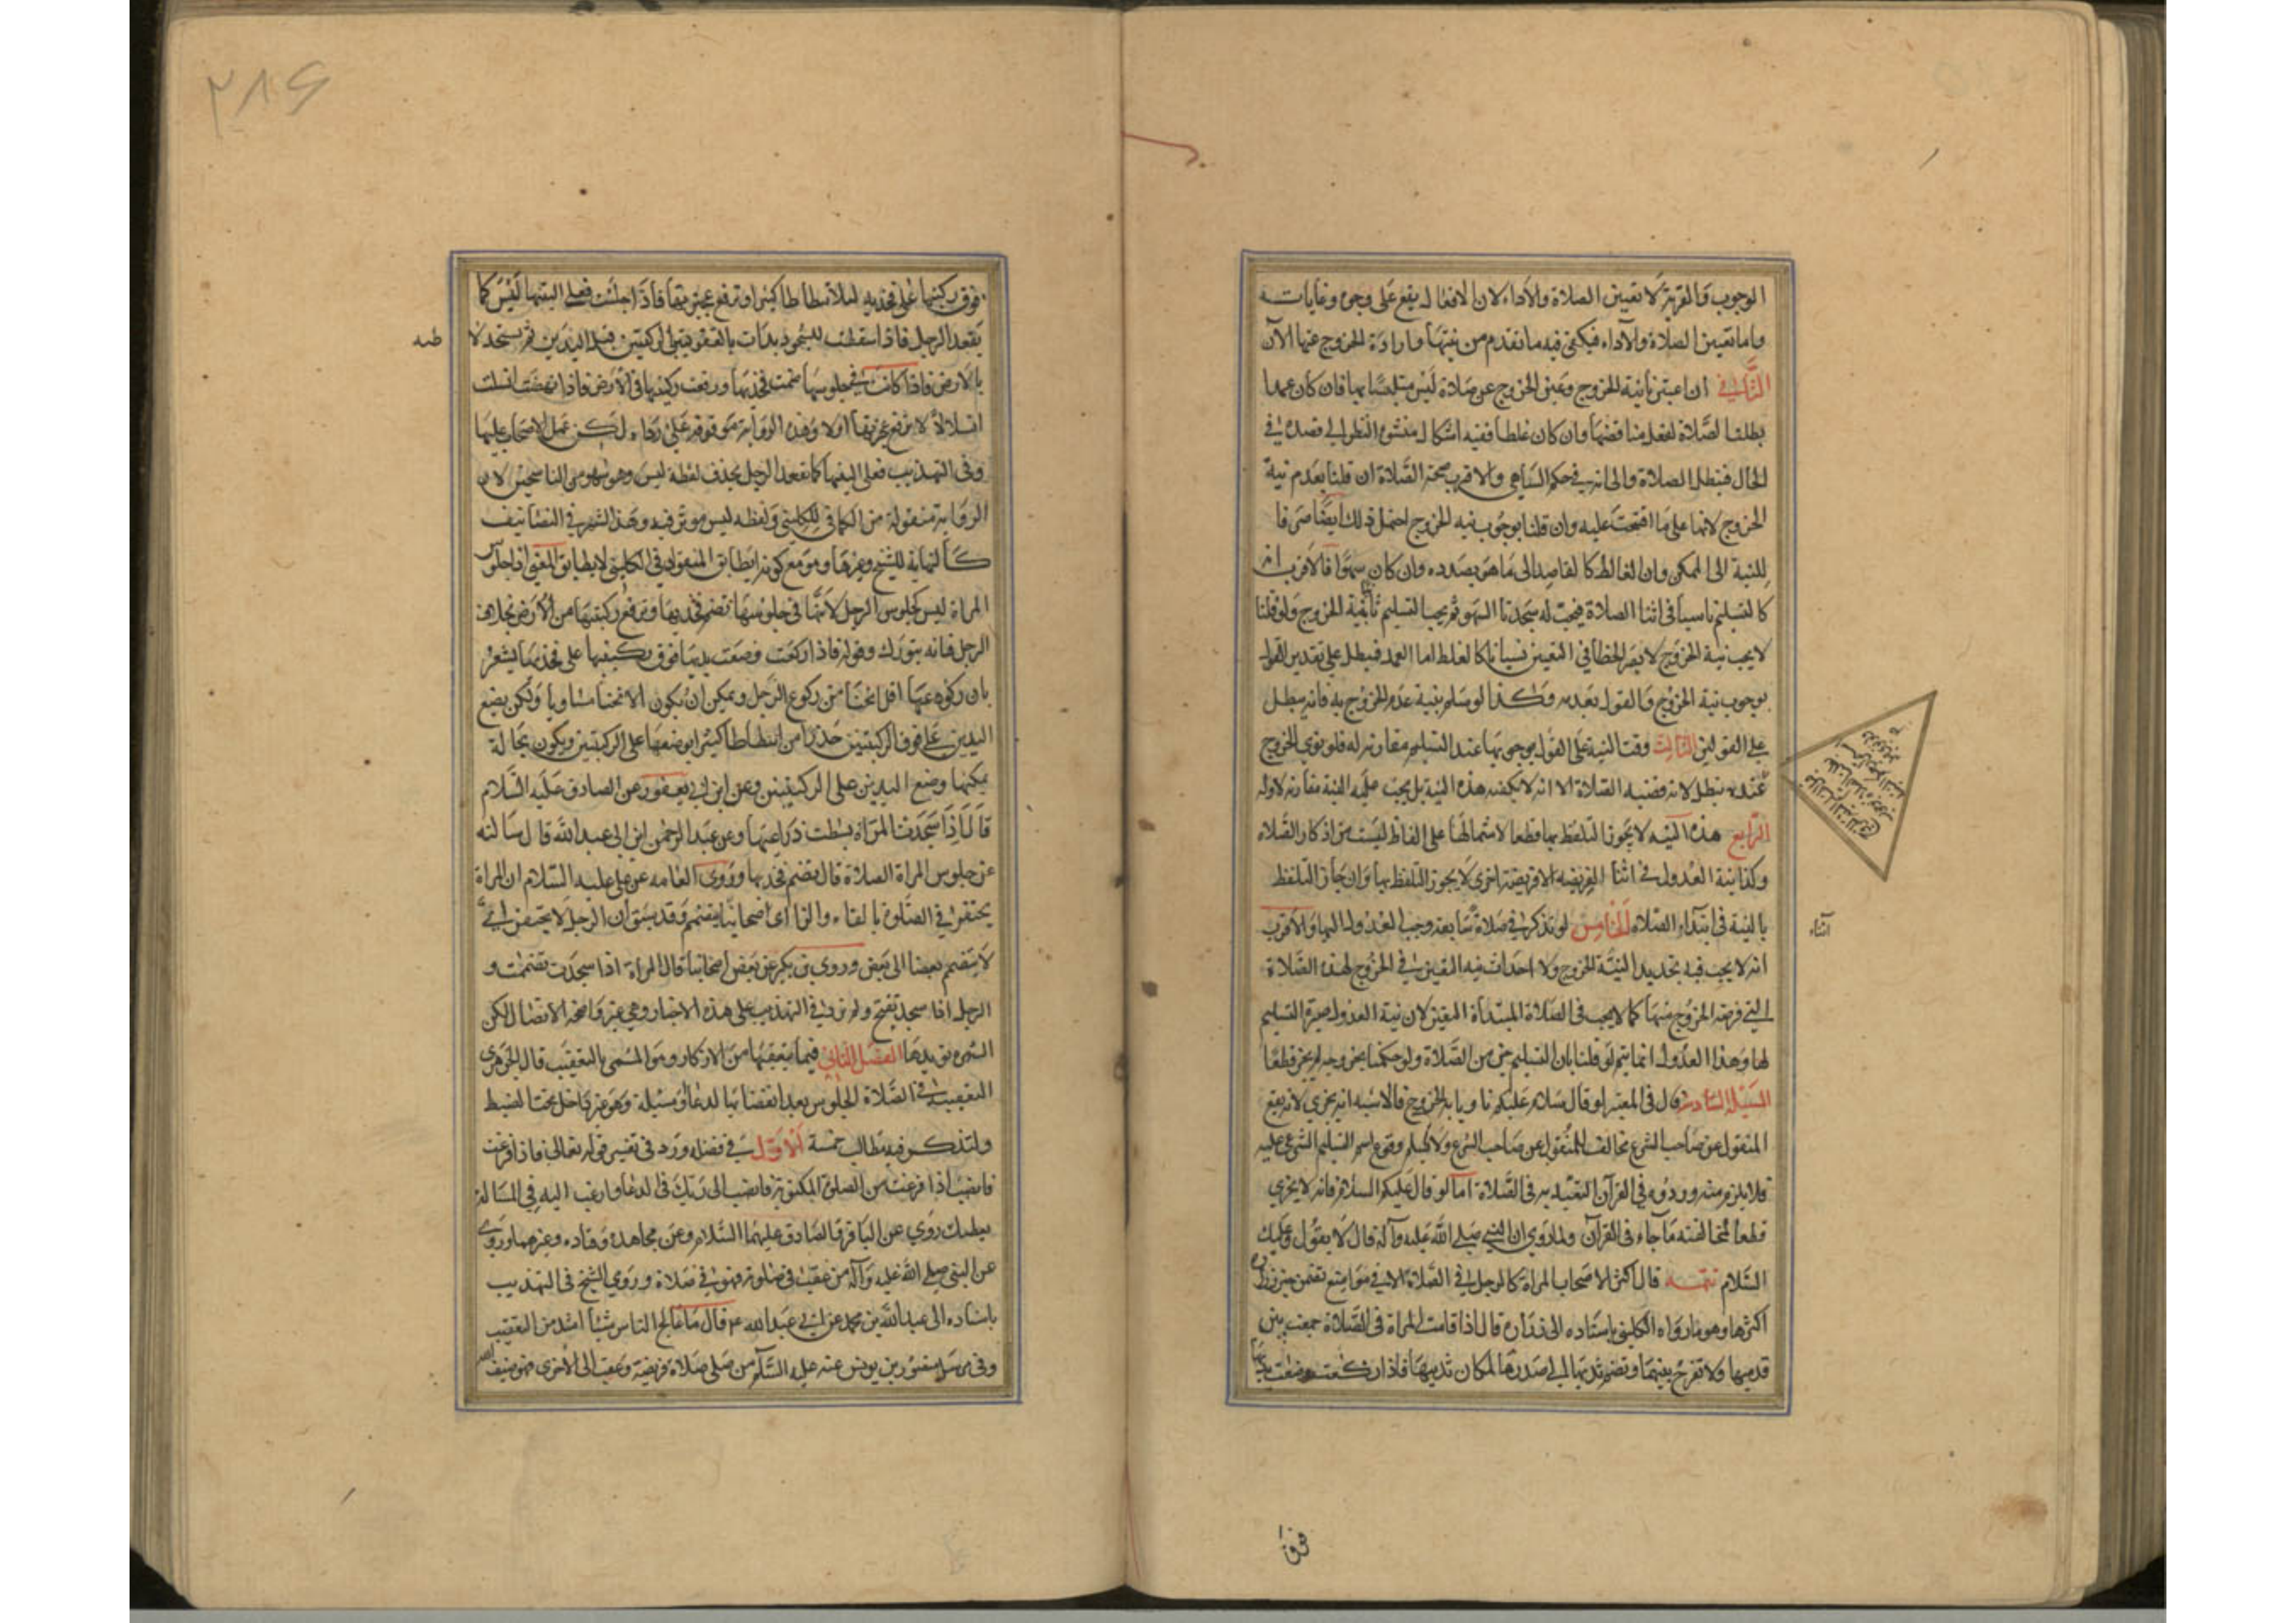 الوجوب والقربة لا تعيين الصلاة والاداء لان الافعال يقع على وجوه وغايات
واما تعيين الصلاة والاداء فيكفى فيه ما تقدم من نيتها وارادة الخروج عنها الآن
الثاني ان اعتبرنا نية الخروج وعين الخروج عن صلاة ليس متلبسا بها فان كان عمدا
بطلت الصلاة لفعل مناقضها وان كان غلطا ففيه اشكال منشوه النظر الى قصده في
الحال فتبطل الصلاة والى انه في حكم الساهي والاقرب صحة الصلاة ان قلنا بعدم نية
الخروج لانها على ما افتتحت عليه وان قلنا بوجوب نية الخروج احتمل ذلك ايضا صرفا
للنية الى الممكن وان الغالط كالقاصد الى ما هو بصدده وان كان سهوا فالاقرب انه
كالتسليم ناسيا في اثنا الصلاة فيجب له سجدتا السهو ثم يجب التسليم ثانيا بنية الخروج ولو قلنا
لا يجب نية الخروج لا يضر الخطا في التعيين نسيانا كالغلط اما العمد فيبطل على تقدير القول
بوجوب نية الخروج والقول بعدمه وكذا لو سلم بنية عدم الخروج به فانه يبطل
على القولين الثالث وقت النية على القول بوجوبها عند التسليم مقارنة له فلو نوى الخروج
عنده تبطل لانه قضية الصلاة الا انه لا يكفيه هذه النية بل يجب عليه النية مقارنة لاوله
الرابع هذه النية لا يجوز التلفظ بها قطعا لاشتمالها على الفاظ ليست من اذكار الصلاة
وكذا نية العدول في اثنا الفريضة الى فريضة اخرى لا يجوز التلفظ بها وان جاز التلفظ
بالنية في ابتداء الصلاة الخامس لو تذكر في صلاة سابقة وجب العدول اليها والاقرب
اثناء
انه لا يجب فيه تجديد النية الخروج ولا احداث نية التعيين في الخروج لهذه الصلاة
التي فرضه الخروج منها كما لا يجب في الصلاة المبتدأة التعيين لان نية العدول صيرة التسليم
لها وهذا العدول انما يتم لو قلنا بان التسليم جزء من الصلاة ولو حكمنا بخروجه لم يجز قطعا
السادس قال في المعتبر لو قال سلام عليكم ناويا به الخروج فالاشبه انه يجزي لانه يقع
المنقول عن صاحب الشرع
فلا يلزم من وروده في القرآن التعبد به في الصلاة اما لو قال عليكم السلام فانه لا يجزي
قطعا لمخالفته ما جاء في القرآن ولما روي ان النبي صلى الله عليه وآله قال لا يقول عليك
السلام تتمة قال اكثر الاصحاب المراة كالرجل في الصلاة الا في مواضع تضمن خبر زرارة
اكثرها وهو ما رواه الكليني باسناده الى زرارة قال اذا قامت المراة في الصلاة جمعت بين
قدميها ولا تفرج بينهما وتضم ثدييها الى صدرها لمكان ثدييها فاذا ركعت وضعت يديها
فوق
٢٨۶
فوق ركبتيها على فخذيها لئلا تطاطا كثيرا وترفع عجيزتها فاذا جلست فعلى اليتيها ليس كما
يقعد الرجل فاذا سقطت للسجود بدات بالقعود بالركبتين قبل اليدين ثم تسجد لا
طئه
بالارض فاذا كانت في جلوسها ضمت فخذيها ورفعت ركبتيها في الارض فاذا نهضت انسلت
انسلالا لا ترفع عجيزتها اولا وهذه الرواية موقوفة على زرارة لكن عمل الاصحاب عليها
وفي التهذيب فعلى اليتيها كما تقعد الرجل بحذف لفظة ليس وهو سهو من الناسخين لان
الرواية منقولة من الكافي للكليني ولفظة ليس موثر فيه وهذا الشهر في التصانيف
كالنهاية للشيخ وغيرها وهو مع كونه لا يطابق المنقول في الكليني لا يطابق المعني اذ جلوس
المراة ليس كجلوس الرجل لانها في جلوسها تضم فخذيها وترفع ركبتيها من الارض بخلاف
الرجل فانه يتورك وقوله فاذا ركعت وضعت يديها فوق ركبتيها على فخذيها يشعر
بان ركوعها اقل انحناء من ركوع الرجل ويمكن ان يكون الانحناء مساويا ولكن يضع
اليدين على فوق الركبتين حذرا من ان تطاطا كثيرا بوضعها على الركبتين ويكون بحالة
يمكنها وضع اليدين على الركبتين وعن ابن ابي يعفور عن الصادق عليه السلام
قال اذا سجدت المراة بسطت ذراعيها وعن عبد الرحمن ابن ابي عبد الله قال سالته
عن جلوس المراة الصلاة قال تضم فخذيها وروى العامه عن على عليه السلام ان المراة
يحتفز في الصلوة بالفاء والزا اي يتضمم وقد سبق ان الرجل لا يحتفز اي
لا يتضمم بعضا الى بعض وروي ابن بكير عن بعض اصحابنا قال المراة اذا سجدت تضممت و
الرجل اذا سجد تفتح ولم يزد في التهذيب على هذه الاخبار وهي غير واضحة الاتصال لكن
الشهرة تؤيدها الفصل الثاني فيما يتعقبها من الاذكار وهو المسمى بالتعقيب قال الجوهري
التعقيب في الصلاة الجلوس بعد انقضائها لدعاء او مسئلة وهو غير داخل تحت الضبط
ولنذكر فيه مطالب خمسة الاول في فضله ورد في تفسير قوله تعالى فاذا فرغت
فانصب اذا فرغت من الصلوة المكتوبة فانصب الى ربك في الدعا وارغب اليه في المسالة
يعطيك روي عن الباقر والصادق عليهما السلام وعن مجاهد وقتادة وغيرهما وروي
عن النبي صلى الله عليه وآله من عقب في صلوته فهو في صلاة وروي الشيخ في التهذيب
باسناده الى عبد الله بن محمد عن ابي عبد الله ع قال ما عالج الناس شيئا اشد من التعقيب
وفى مرسل منصور بن يونس عنه عليه السلام من صلى صلاة فريضة وعقب الى الاخرى فهو ضيف الله